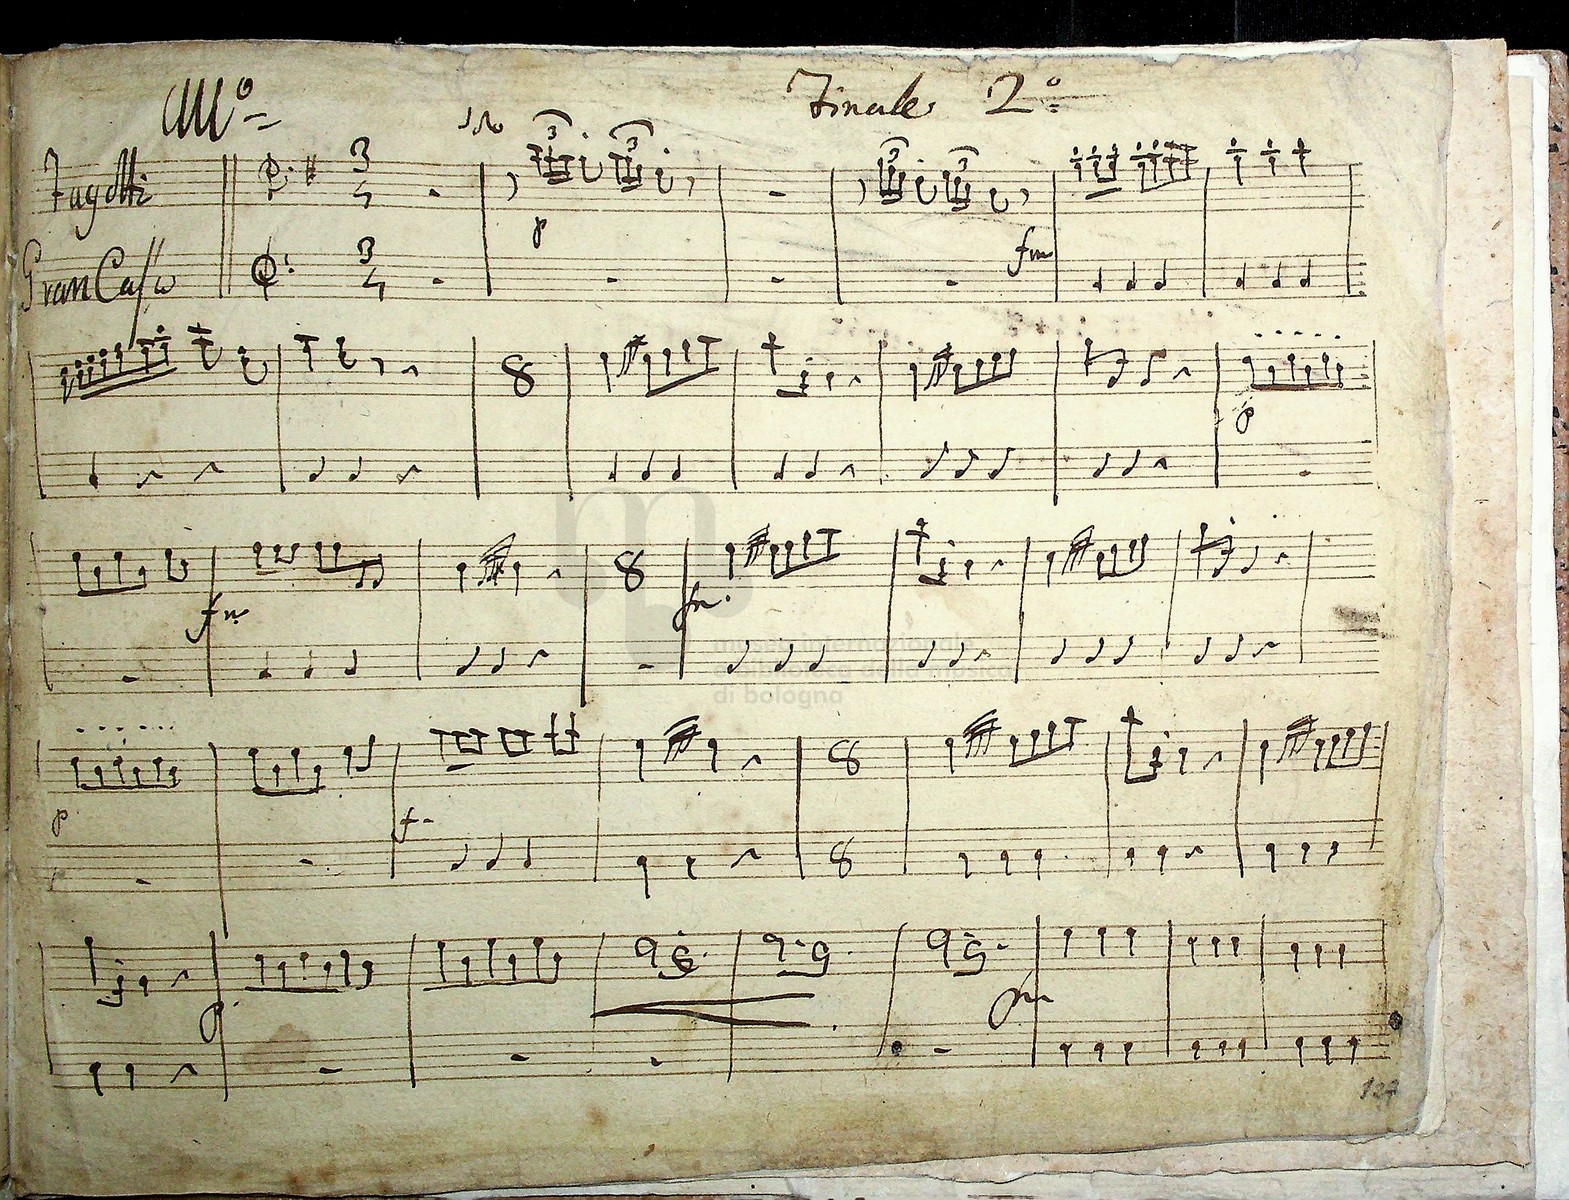 All.º Finale 2.º
Fagotti 3/4
p
fm
Gran Cassa 3/4
8
p
fm 8 fm.
p f 8
8
p. fm
127
museo internazionale
e biblioteca della musica
di bologna